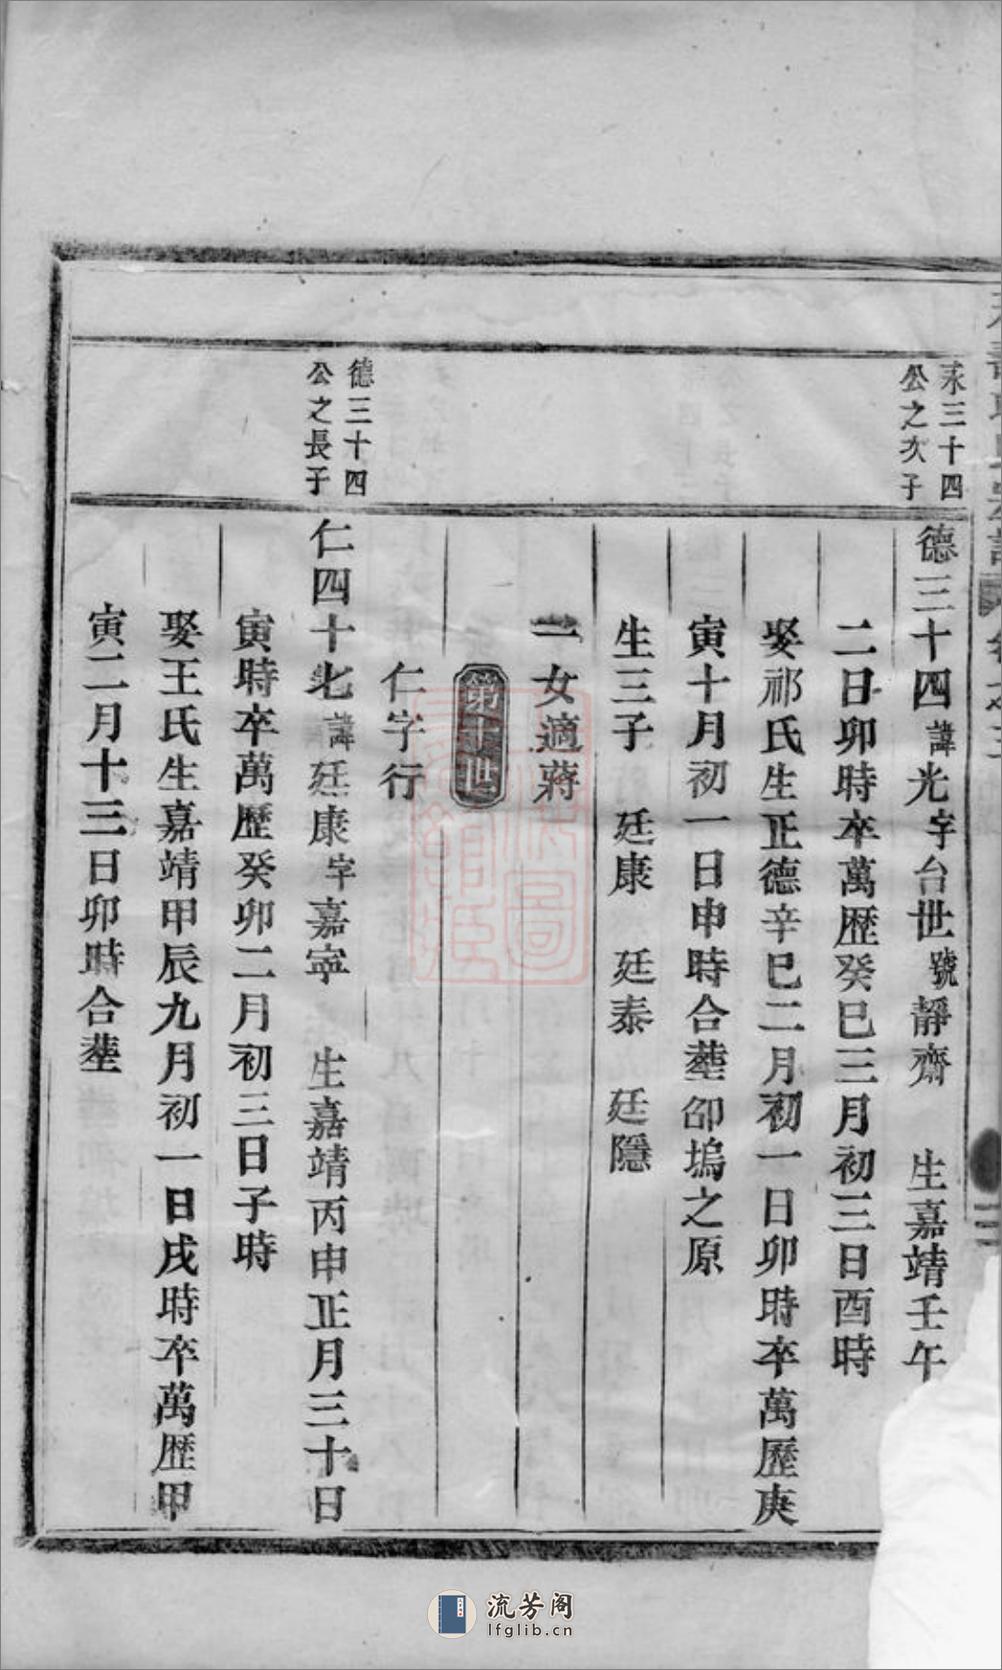 永三十四
公之次子
德三十四諱光字台世號靜齋 生嘉靖壬午
二日卯時卒萬歷癸巳三月初三日酉時
娶祁氏生正德辛巳二月初一日卯時卒萬歷庚
寅十月初一日申時合塟卲塢之原
生三子 廷康 廷泰 廷隱
一女適蔣
第十世
仁字行
德三十四
公之長子
仁四十七諱廷康字嘉寧 生嘉靖丙申正月三十日
寅時卒萬歷癸卯二月初三日子時
娶王氏生嘉靖甲辰九月初一日戌時卒萬歷甲
寅二月十三日卯時合塟
流芳阁
lfglib.cn